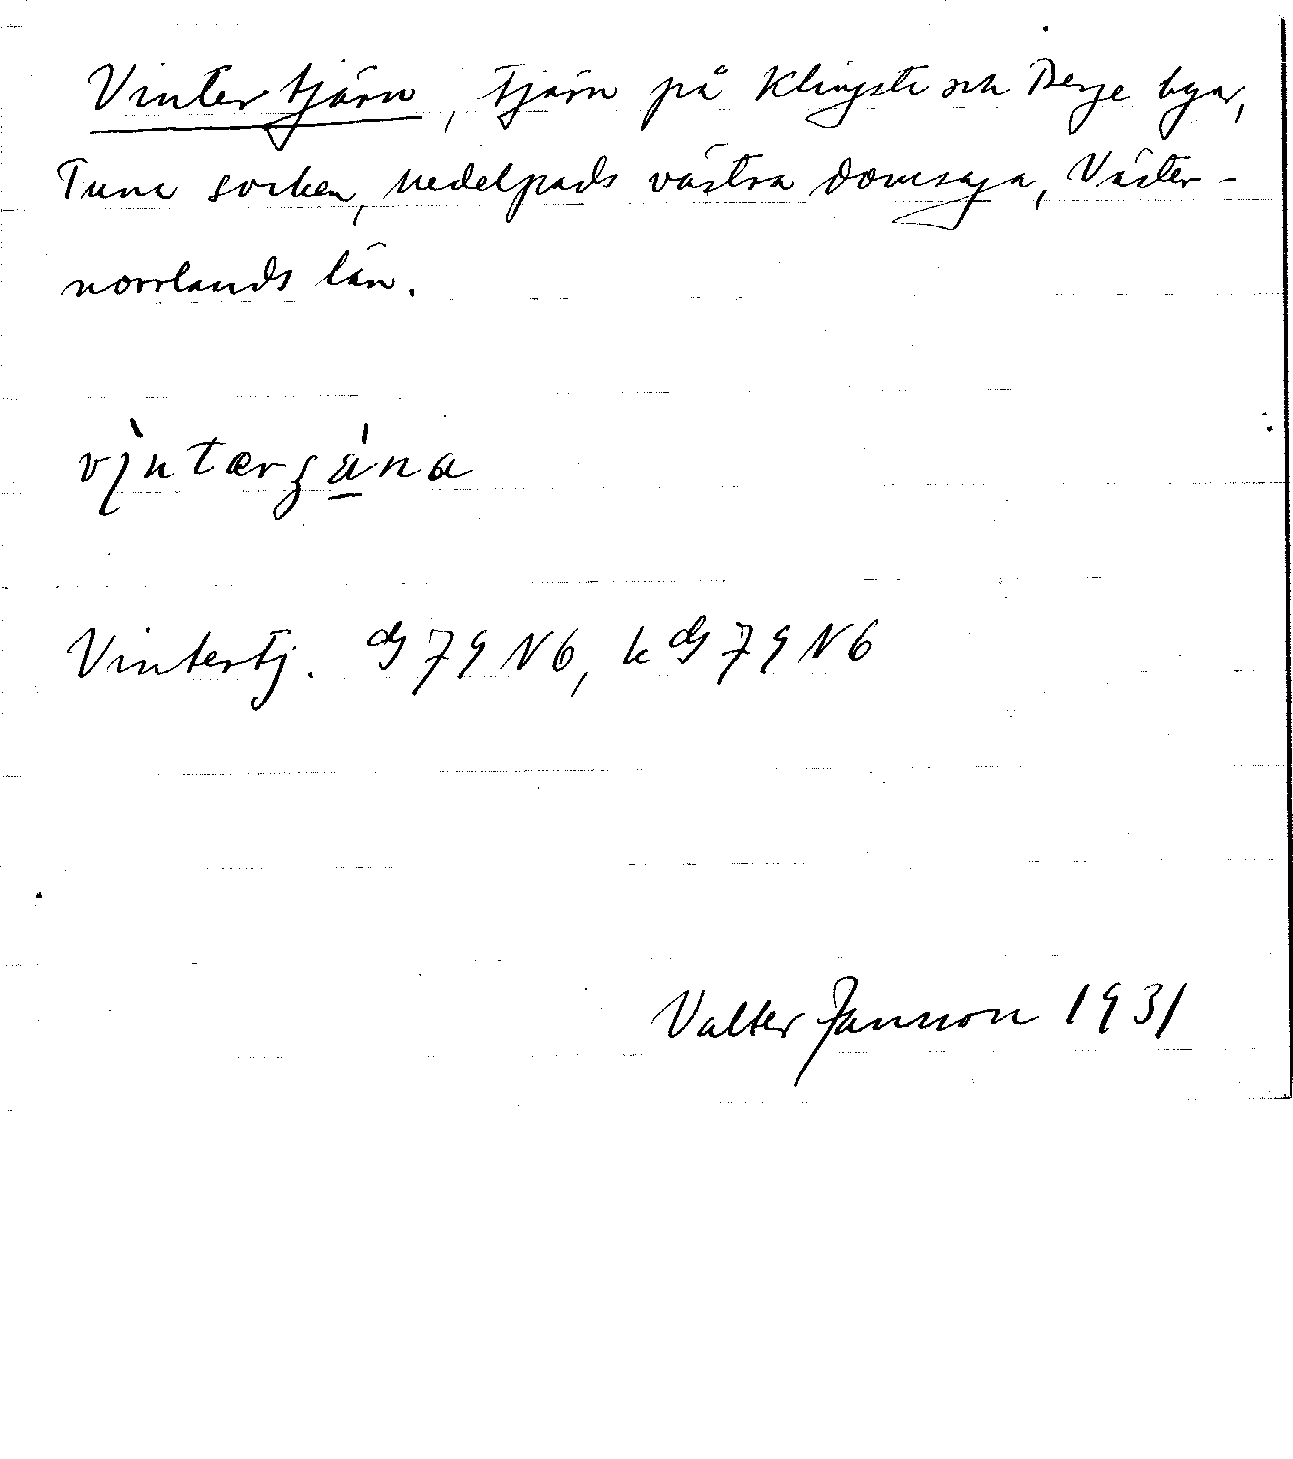 Vintertjärn, tjärn på Klingsta och Berge byar,
Tuna socken, Medelpads västra domsaga, Väster-
norrlands län.
Vintertj. G 79 N6, k G 79 N6
Valter Jansson 1931